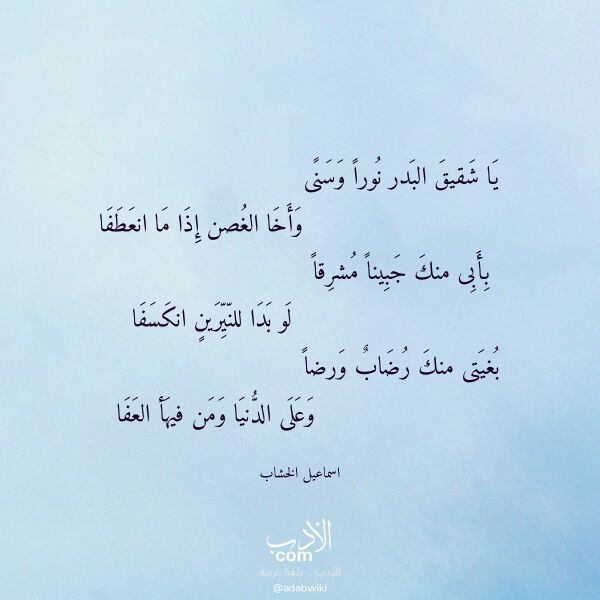 يَا شَقيقَ البَدر نُوراً وَسَنًى
وَأَخَا الغُصن إِذَا مَا انعَطَفَا
بِأَبِى منكَ جَبِيناً مُشرِقاً
لَو بَدَا للنّيِّرَينِ انكَسَفَا
بُغيَتِى منكَ رُضَابٌ وَرضاً
وَعَلَى الدُّنيَا وَمَن فيهَأ العَفَا
اسماعيل الخشاب
الأدب
com
الأدب .. بلغة عربية
@adabwiki